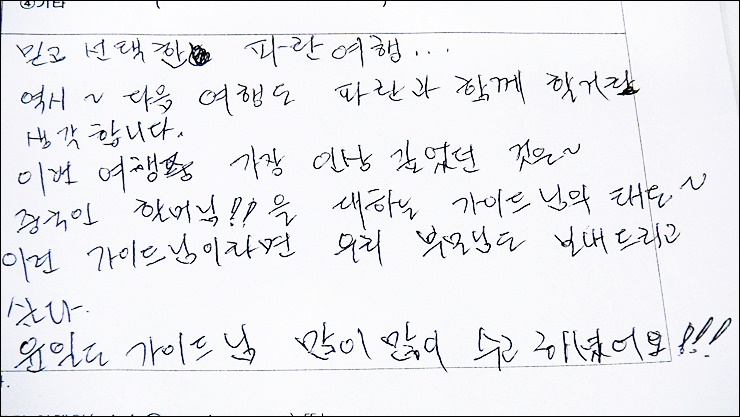 ④기타 (
믿고 선택한 파란여행...
역시~ 다음 여행도 파란과 함께 할거라
생각합니다.
이번 여행중 가장 인상 깊었던 것은~
중국인 할머님!!을 대하는 가이드님의 태도~
이런 가이드님이라면 우리 부모님도 보내드리고
싶다.
가이드님 많이많이 수고하셨어요!!!